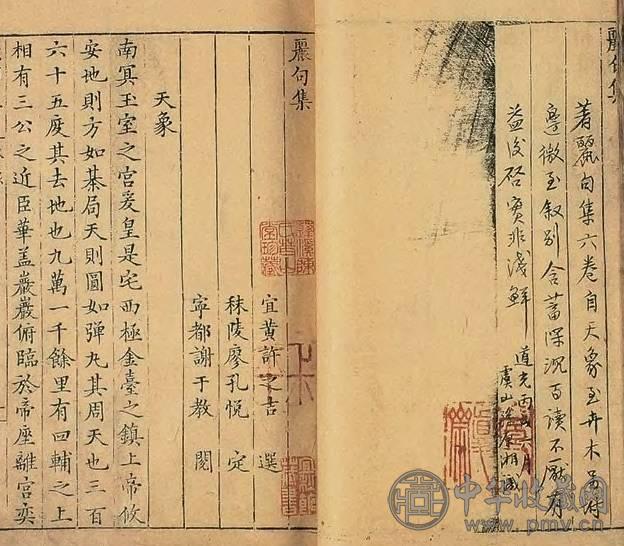 麗句集
著麗句集六卷自天象至卉木
邊徵至叙别含蓄深沉百讀不厭有
益後啓實非淺鮮
道光丙
虞山
麗句集
宜黃許之吉 選
秣陵廖孔悅 定
寧都謝于教 閱
天象
南冥玉室之宮爰皇是宅西極金臺之鎮上帝攸
安地則方如棊局天則圓如彈丸其周天也三百
六十五度其去地也九萬一千餘里有四輔之上
相有三公之近臣華盖巖巖俯臨於帝座離宮奕
中华收藏网
www.pmv.cn